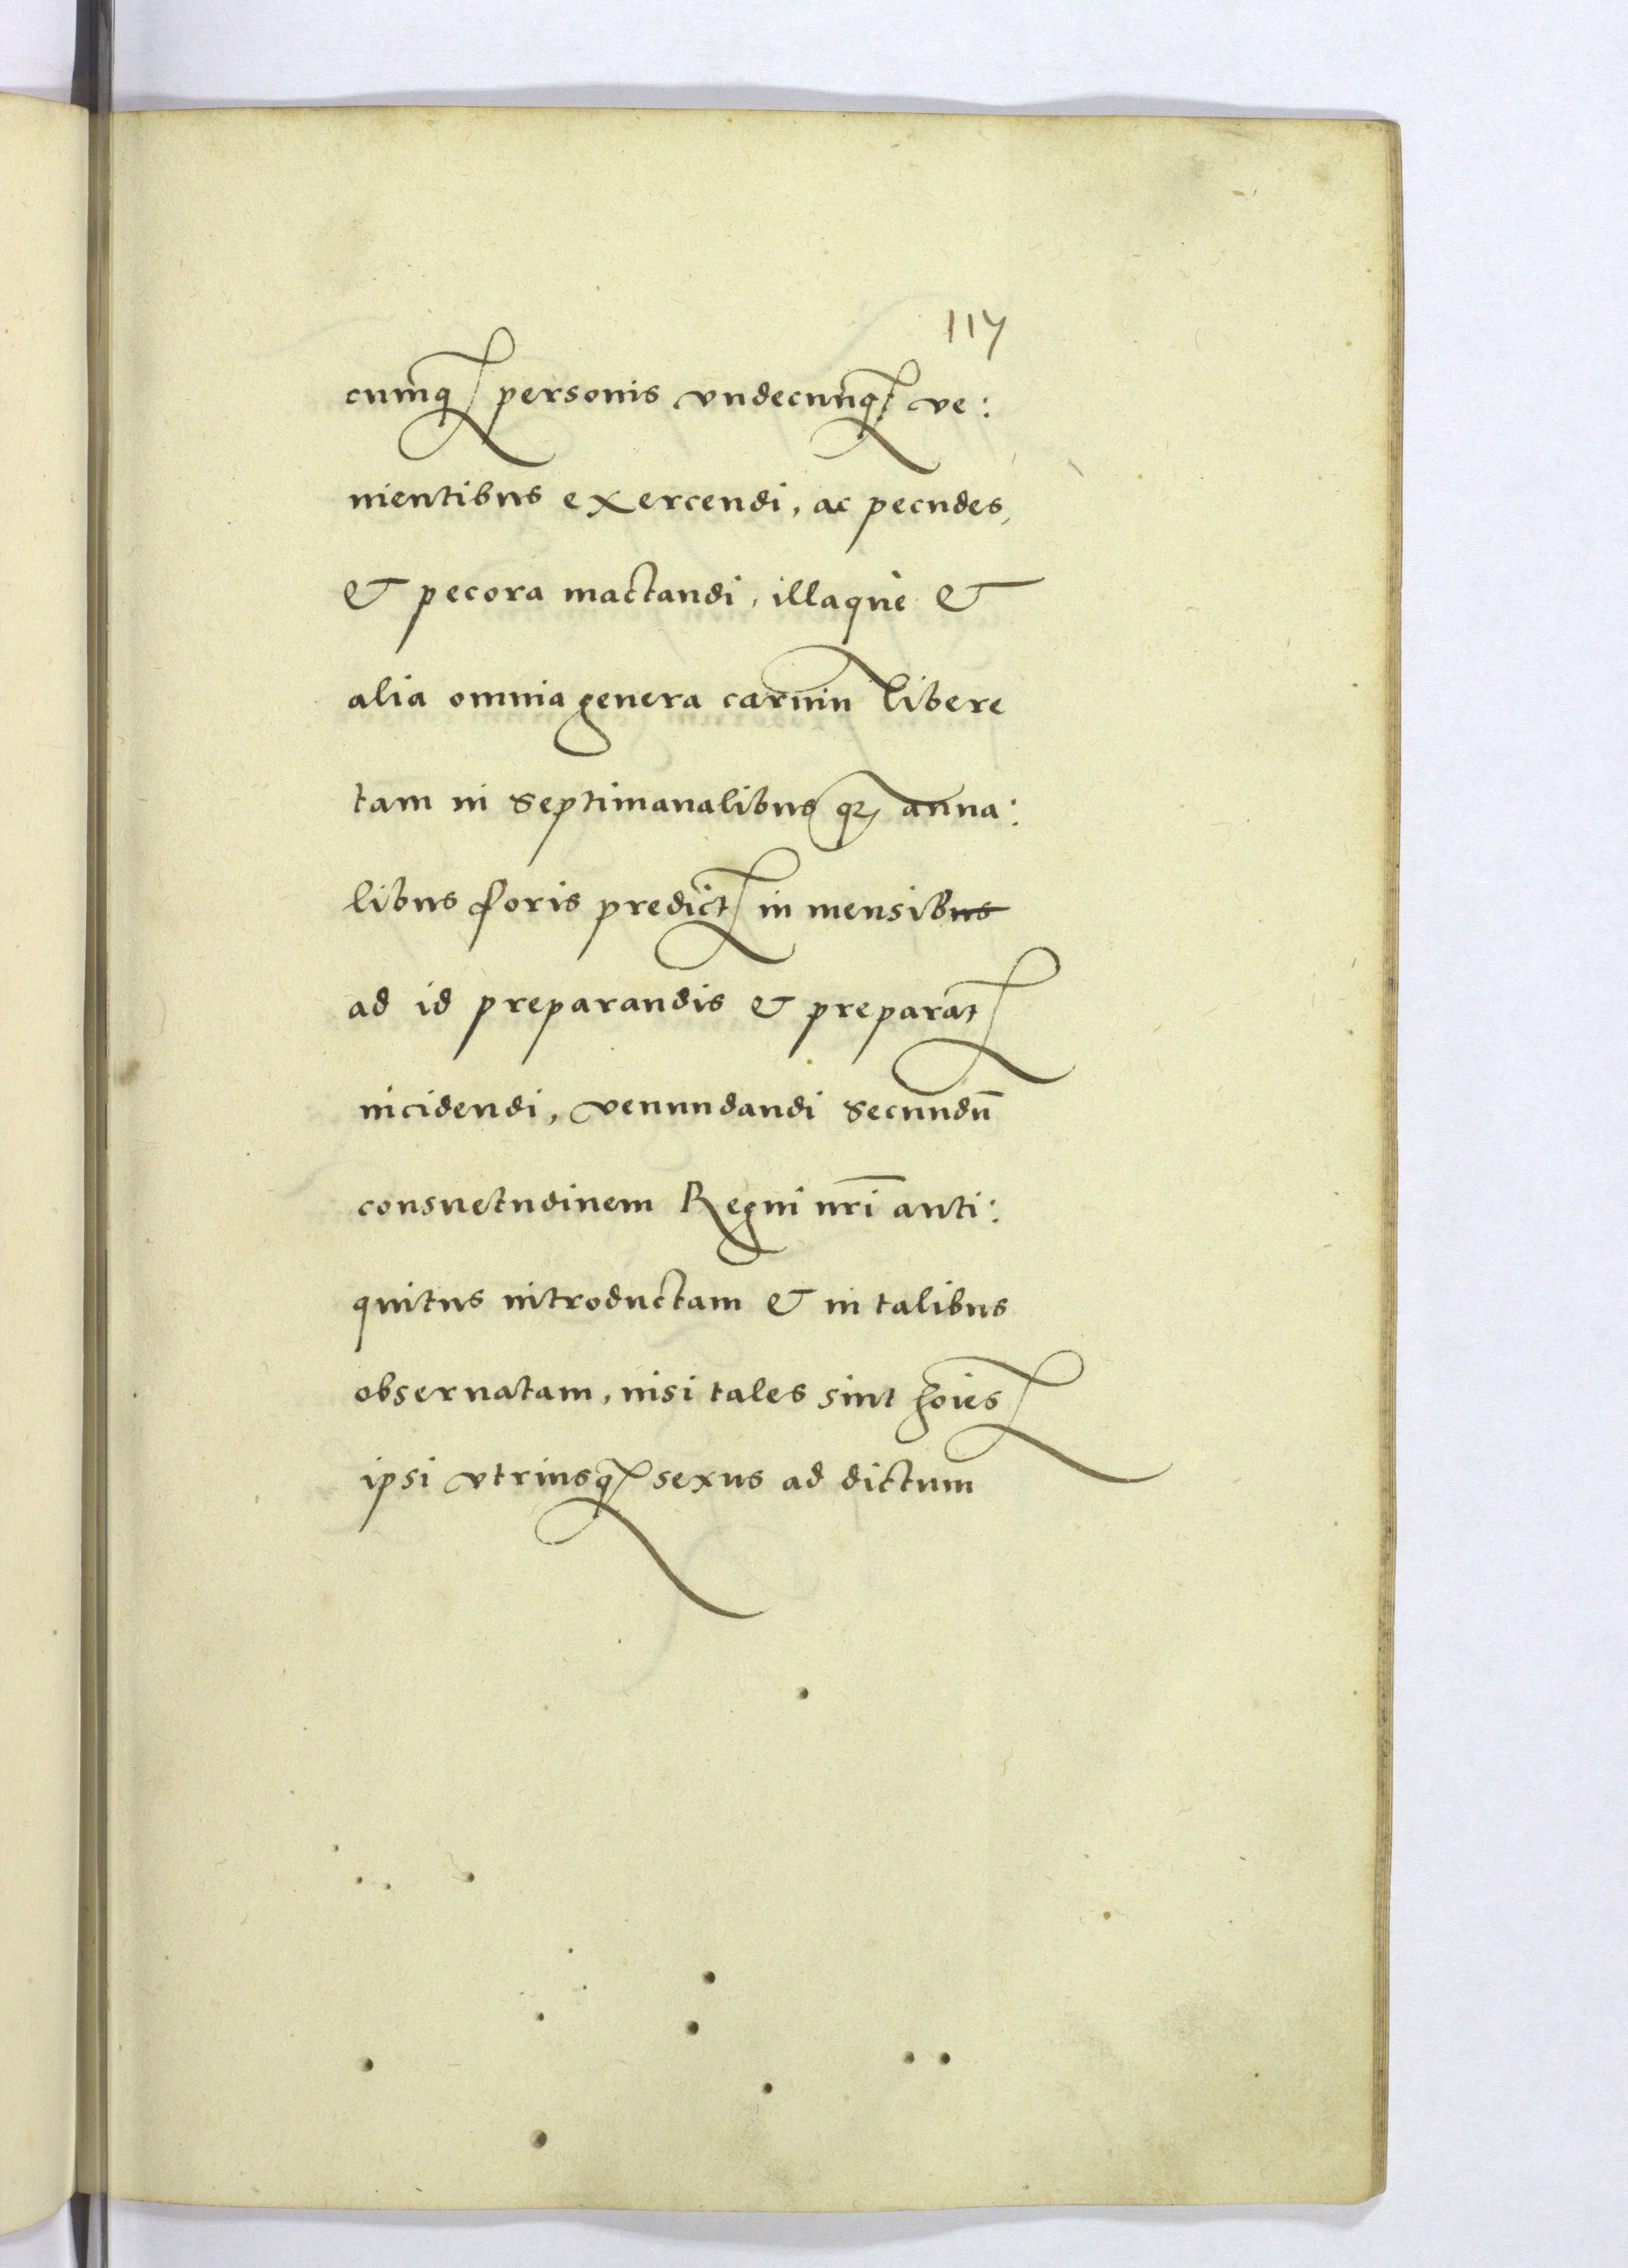 117
cumq personis vndecunq ve:
nientibus exercendi, ac pecudes,
& pecora mactandi, illaque &
alia omnia genera carniu libere
tam in Septimanalibus qz annua:
libus foris predict in mensibus
ad id preparandis & preparat
incidendi, venundandi Secundū
consuetudinem Regni nr̄i anti:
quitus introductam & in talibus
obseruatam, nisi tales sint hoies
ipsi vtriusq sexus ad dictum